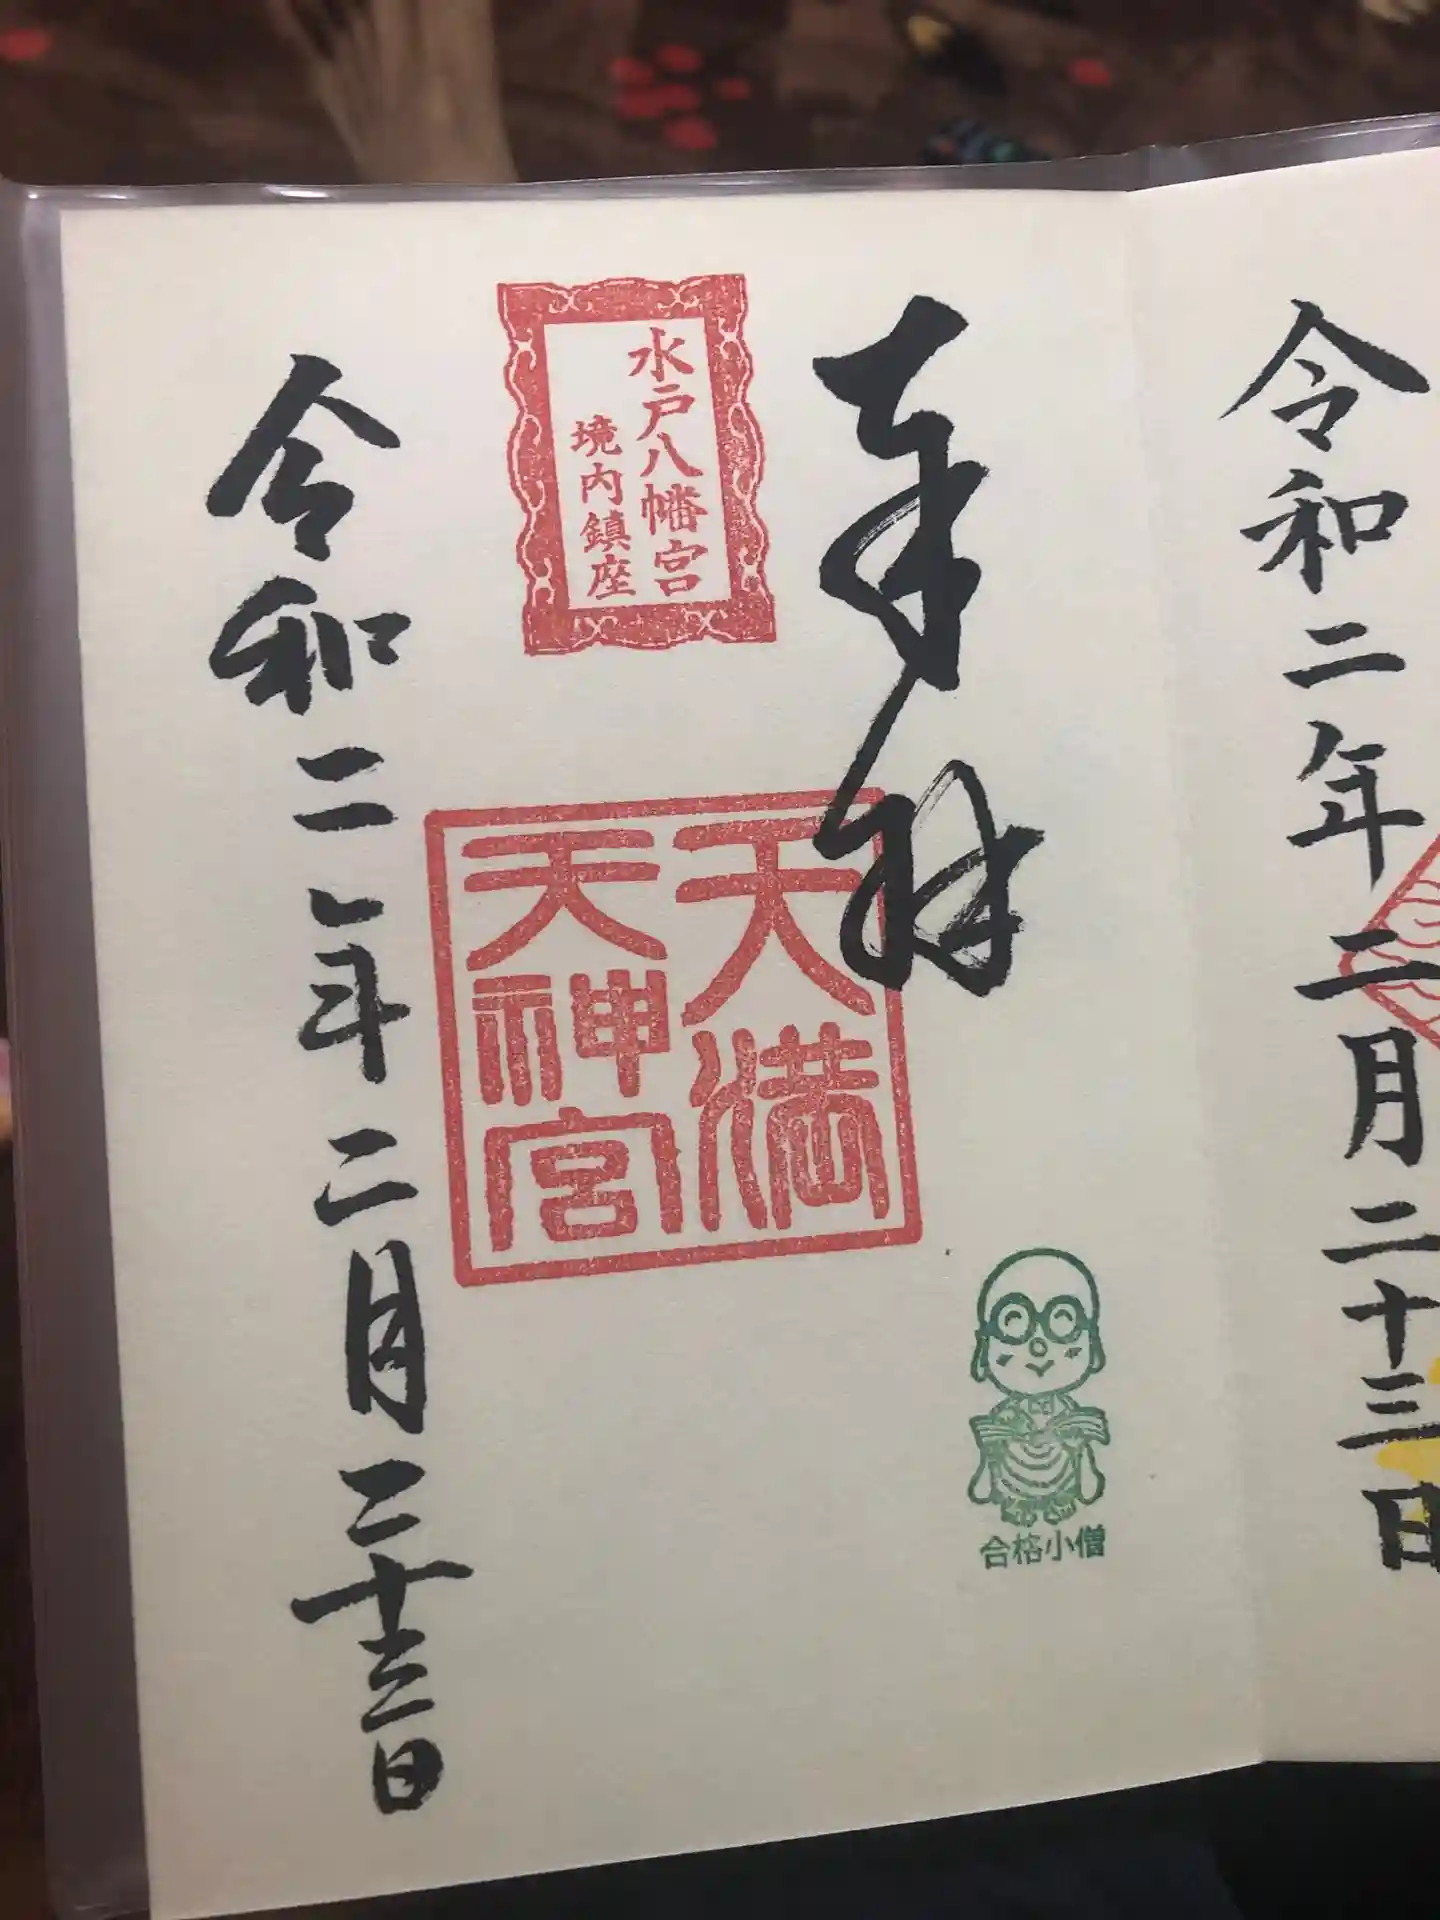 令和二年二月二十三日
奉拝
水戸八幡宮
境内鎮座
天満
天神宮
合格小僧
令和二年二月二十三日